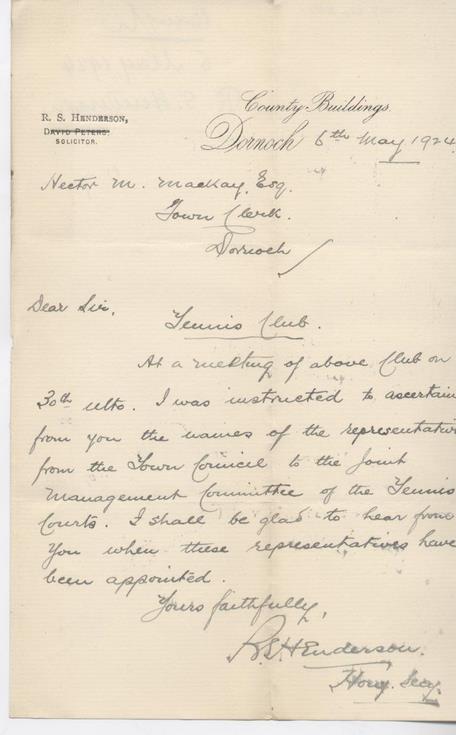 County Buildings.
R. S. HENDERSON,
DAVID PETERS,
SOLICITOR.
Dornoch 6th May 1924
Hector M. Mackay, Esq.
Town Clerk.
Dornoch
Dear Sir,
Tennis Club.
At a meeting of above Club on
30th ulto. I was instructed to ascertain
from you the names of the representative
from the Town Council to the Joint
Management Committee of the Tennis
Courts. I shall be glad to hear from
you when these representatives have
been appointed.
Yours faithfully,
R.S. Henderson.
Hony. Secy.